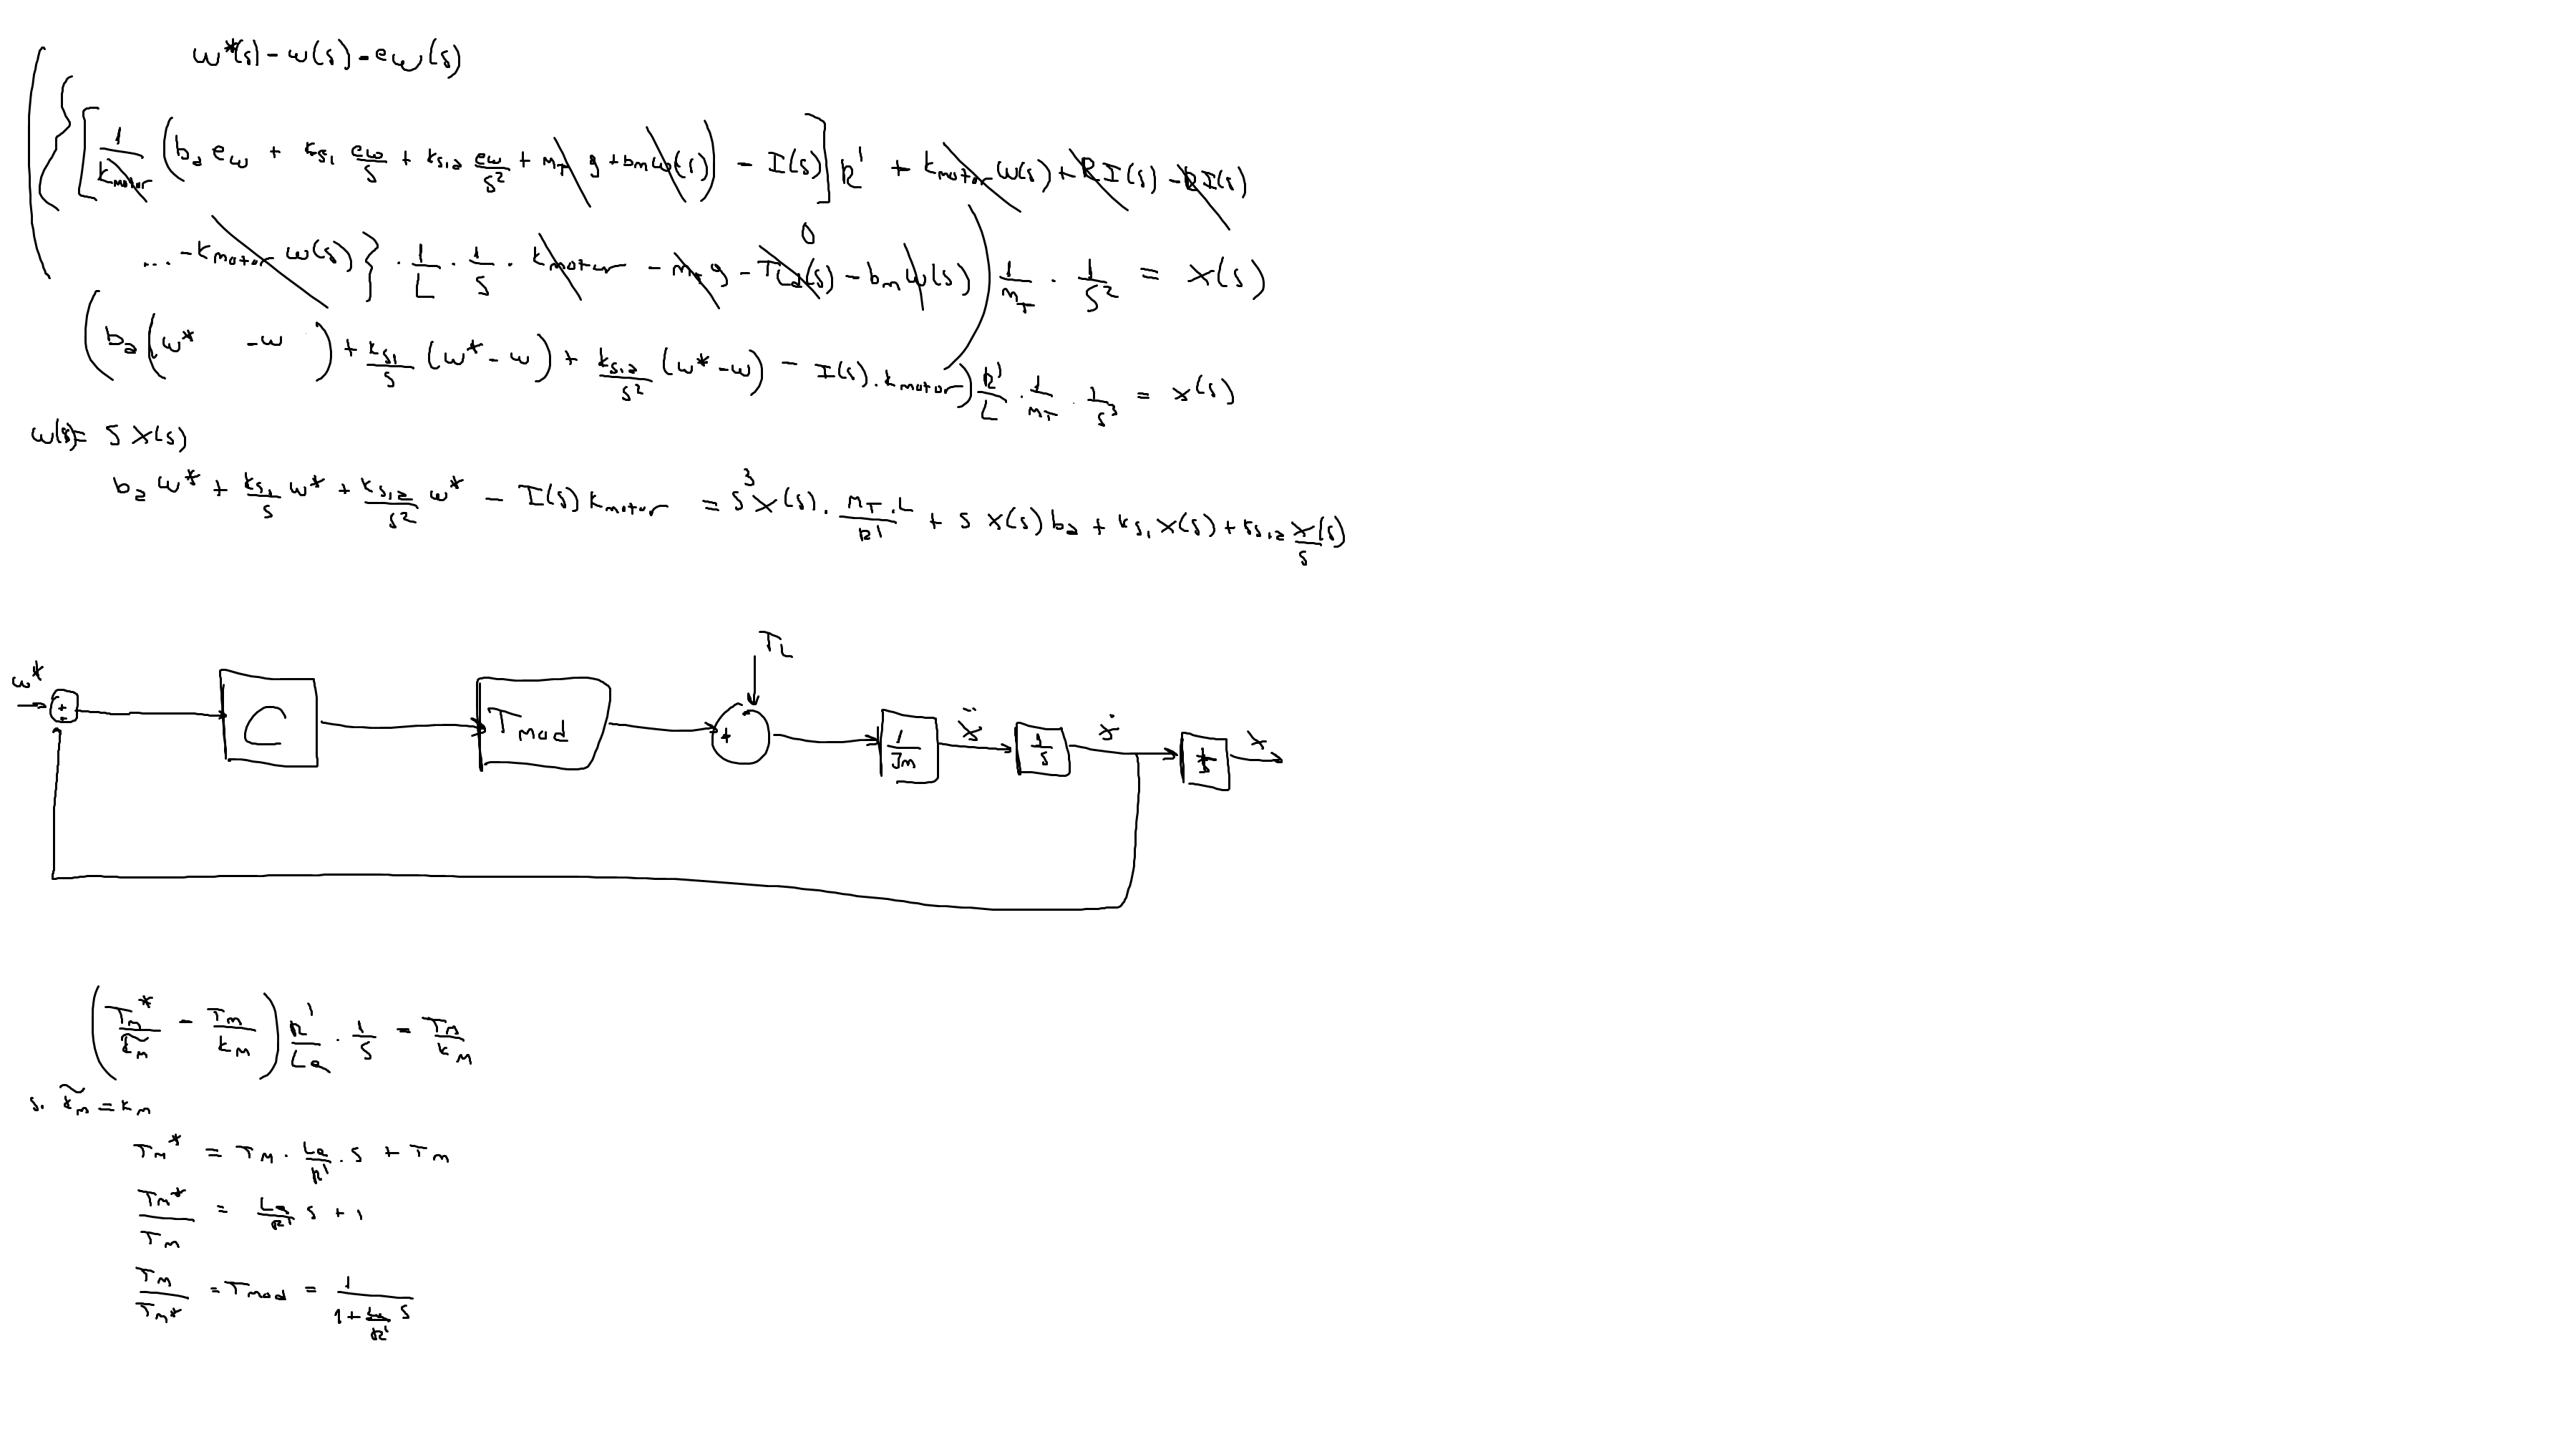 w*(s) - w(s) = ew(s)
( { [ 1/Kmotor ( ba ew + ks1 ew/s + ks,a ew/s² + mT g + bm w(s) ) - I(s) ] R' + kmotor w(s) + R I(s) - R I(s)
... - kmotor w(s) } · 1/L · 1/s · kmotor - mT g - TLd(s) - bm w(s) ) 1/mT · 1/s² = X(s)
0
( ba ( w* - w ) + ks1/s ( w* - w ) + ks,a/s² ( w* - w ) - I(s) . kmotor ) R'/L · 1/mT · 1/s³ = x(s)
w(s) = S X(s)
ba w* + ks1/s w* + ks,a/s² w* - I(s) kmotor = S³ X(s) · mT . L/R' + s X(s) ba + ks1 X(s) + ks,a X(s)/s
TL
w*
+
-
C
Tmod
+
-
1/Jm
ẍ
1/s
ẋ
1/s
x
( Tm*/k̃m - Tm/km ) R'/La · 1/s = Tm/km
s. k̃m = km
Tm* = Tm . La/R' . s + Tm
Tm*/Tm = La/R' s + 1
Tm/Tm* = Tmod = 1/(1 + La/R' s)